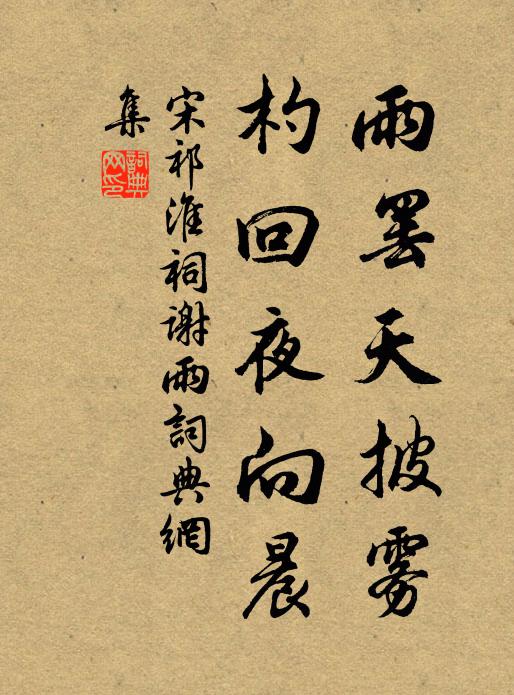 雨罢天披雾
杓回夜向晨
宋祁淮祠谢雨詞典網
集
詞典网印